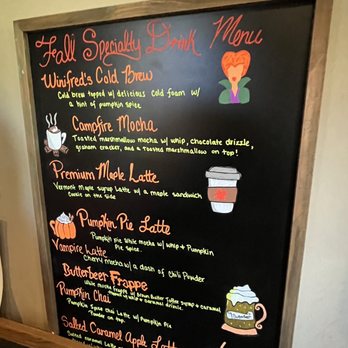 Fall Specialty Drink Menu
Winifred's Cold Brew
Cold brew topped w/ delicious cold foam w/
a hint of pumpkin spice
Campfire Mocha
Toasted marshmallow mocha w/ whip, chocolate drizzle,
graham cracker, and a toasted marshmallow on top!
Premium Maple Latte
Vermont Maple syrup latte w/ a maple sandwich
cookie on the side
Pumpkin Pie Latte
Pumpkin pie white mocha w/ whip + Pumpkin
Pie Spice
Vampire Latte
Cherry mocha w/ a dash of Chili Powder
Butterbeer Frappe
White mocha frappe w/ brown butter toffee syrup + caramel
topped w/ whip + caramel drizzle
Pumpkin Chai
Pumpkin spice Chai Latte w/ Pumpkin Pie
Powder on top
Salted Caramel Apple Latte
Salted caramel